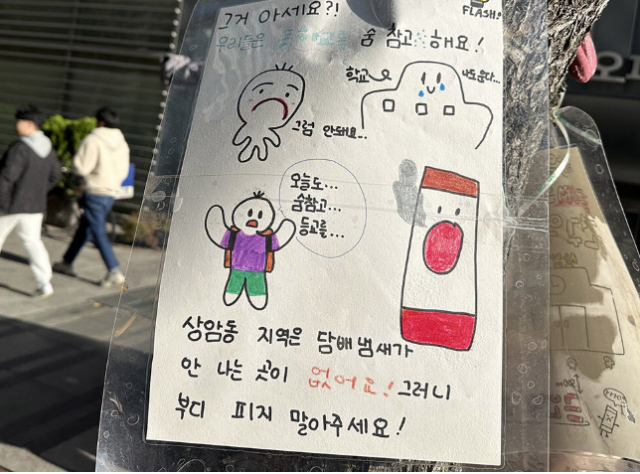 그거 아세요?!
FLASH!
우리들은 등하교를 숨 참고 해요!
학교
나도 운다...
그럼 안돼요...
오늘도...
숨참고...
등교를...
상암동 지역은 담배냄새가
안 나는 곳이 없어요! 그러니
부디 피지 말아주세요!